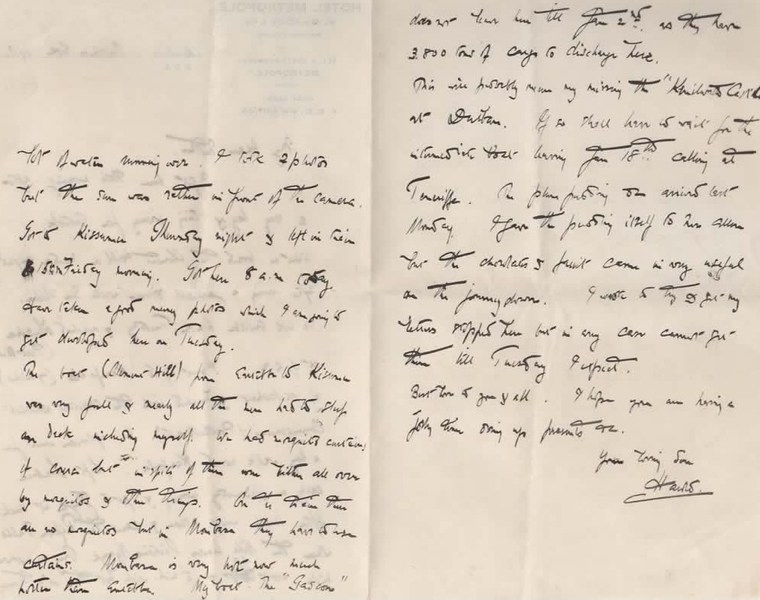 HOTEL METROPOLE
hot & water morning over. I took 2 photos
but the sun was rather in front of the camera.
Got to Kissumu Thursday night & left in train
Friday morning. Got here 8 a.m. today.
Have taken a good many photos which I am going to
get developed here on Tuesday.
The boat (Clement Hill) from Entebbe to Kissumu
was very full & nearly all the men had to sleep
on deck including myself. We had mosquito curtains
of course but in spite of them were bitten all over
by mosquitos & other things. On the train there
are no mosquitos but in Mombasa they have to use
curtains. Mombasa is very hot now much
hotter than Entebbe. My boat the "Gascon"
does not leave here till Jan 2nd. as they have
3.800 tons of cargo to discharge here.
This will probably mean my missing the "Kenilworth Castle"
at Durban. If so shall have to wait for the
intermediate boat leaving Jan 18th calling at
Teneriffe. The plum pudding arrived last
Monday. I gave the pudding itself to
but the chocolates & fruit came in very useful
on the journey down. I want to try & get my
letters stopped here but in any case cannot get
them till Tuesday I expect.
Best love to you & all. I hope you are having a
jolly time giving up presents &c.
Your loving son
Harold.